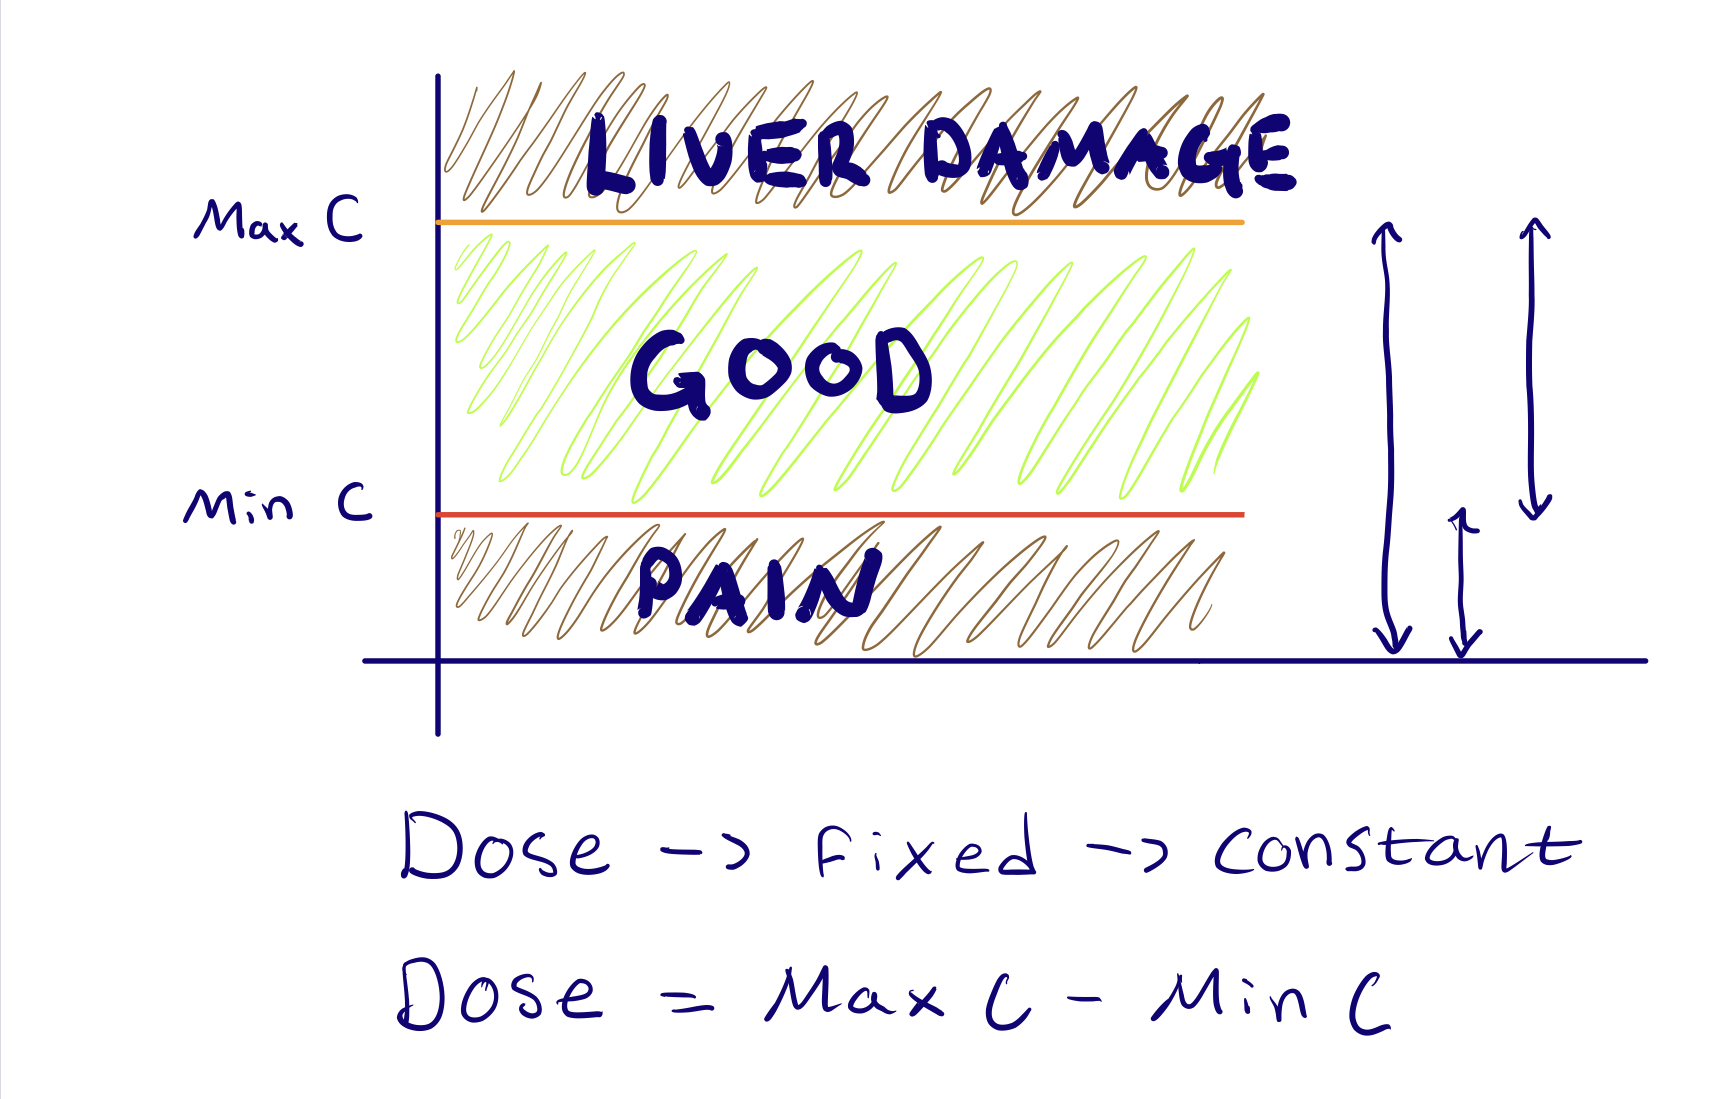 LIVER DAMAGE
Max C
GOOD
Min C
PAIN
Dose -> fixed -> constant
Dose = Max C - Min C